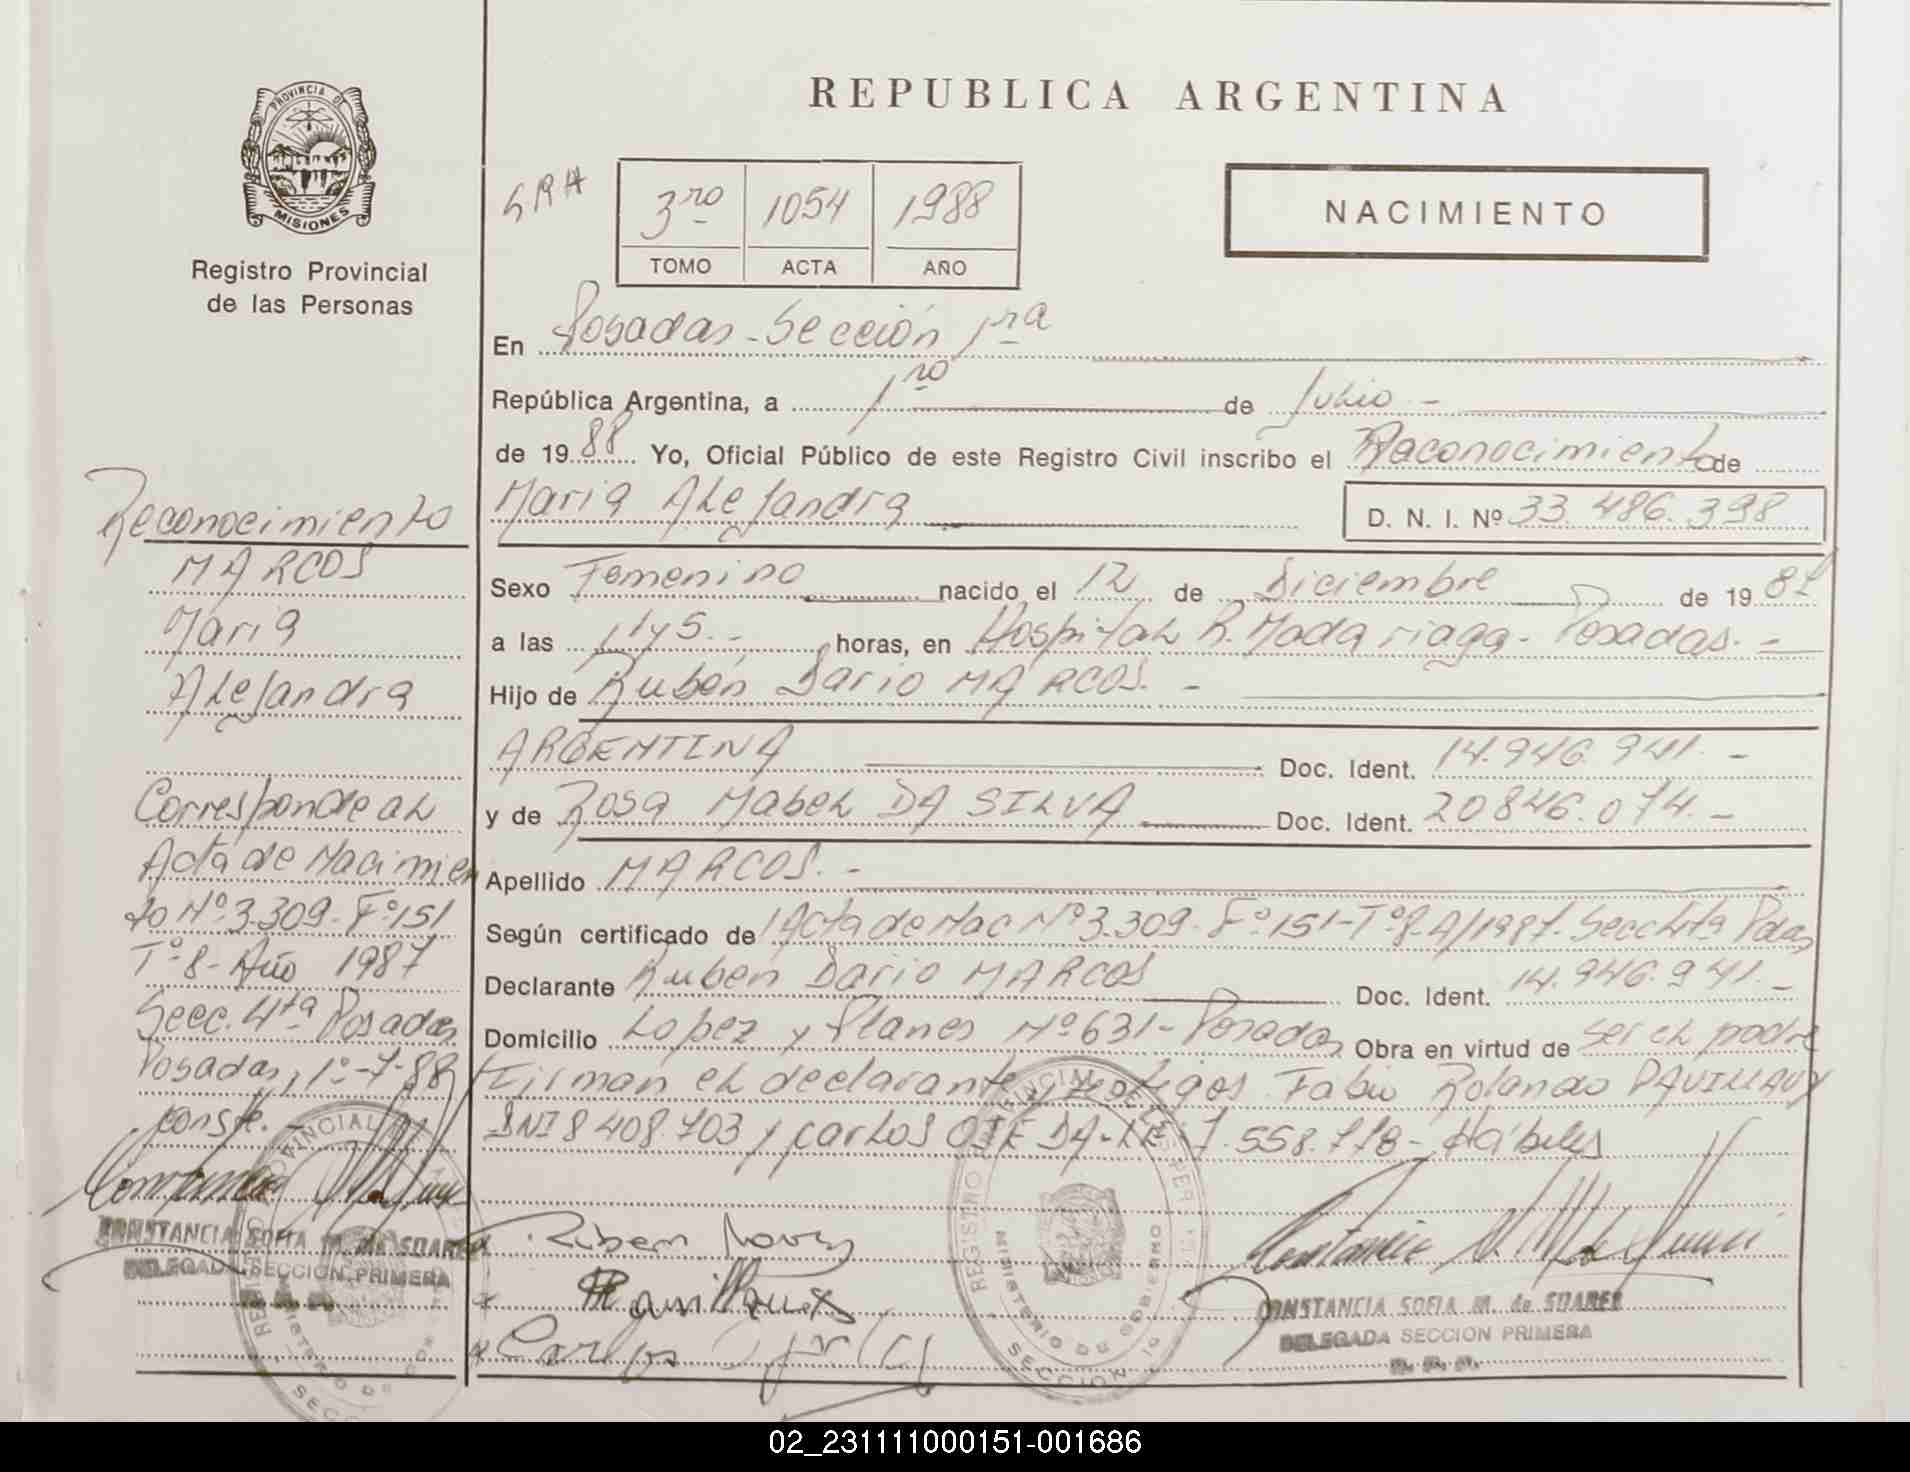 REPUBLICA ARGENTINA
PROVINCIA DE
MISIONES
Registro Provincial
de las Personas
3ro 1054 1988
TOMO ACTA AÑO
NACIMIENTO
En Posadas - Sección 1ra
República Argentina, a 1ro de Julio -
de 1988 Yo, Oficial Público de este Registro Civil inscribo el Reconocimiento de
Maria Alejandra D. N. I. Nº 33.486.398
Sexo Femenino nacido el 12 de Diciembre de 1987
a las 1 y 5.- horas, en Hospital R. Madariaga - Posadas. -
Hijo de Rubén Dario MARCOS. -
ARGENTINA Doc. Ident. 14.946.941. -
y de Rosa Mabel DA SILVA Doc. Ident. 20846.074. -
Apellido MARCOS. -
Según certificado de Acta de Nac Nº 3.309. Fº 151 - Tº 8. A/1987. Secc 4ta Pdas
Declarante Ruben Dario MARCOS Doc. Ident. 14.946.941. -
Domicilio Lopez y Planes Nº 631 - Posadas Obra en virtud de ser el padre
Firman el declarante y testigos Fabio Rolando DAVILLAUX
DNI 8 408.703 y Carlos OJEDA - LE 7.558.778 - Hábiles
Reconocimiento
MARCOS
Maria
Alejandra
Corresponde al
Acta de Nacimien
to Nº 3.309 - Fº 151
Tº 8 - Año 1987
Secc. 4ta Posadas
Posadas, 1º-7-88
conste. -
CONSTANCIA SOFIA M. de SUAREZ
DELEGADA SECCION PRIMERA
Carlos
REGISTRO PROVINCIAL DE LAS PER
MINISTERIO DE GOBIERNO
SECCION 1º
CONSTANCIA SOFIA M. de SUAREZ
DELEGADA SECCION PRIMERA
02_231111000151-001686